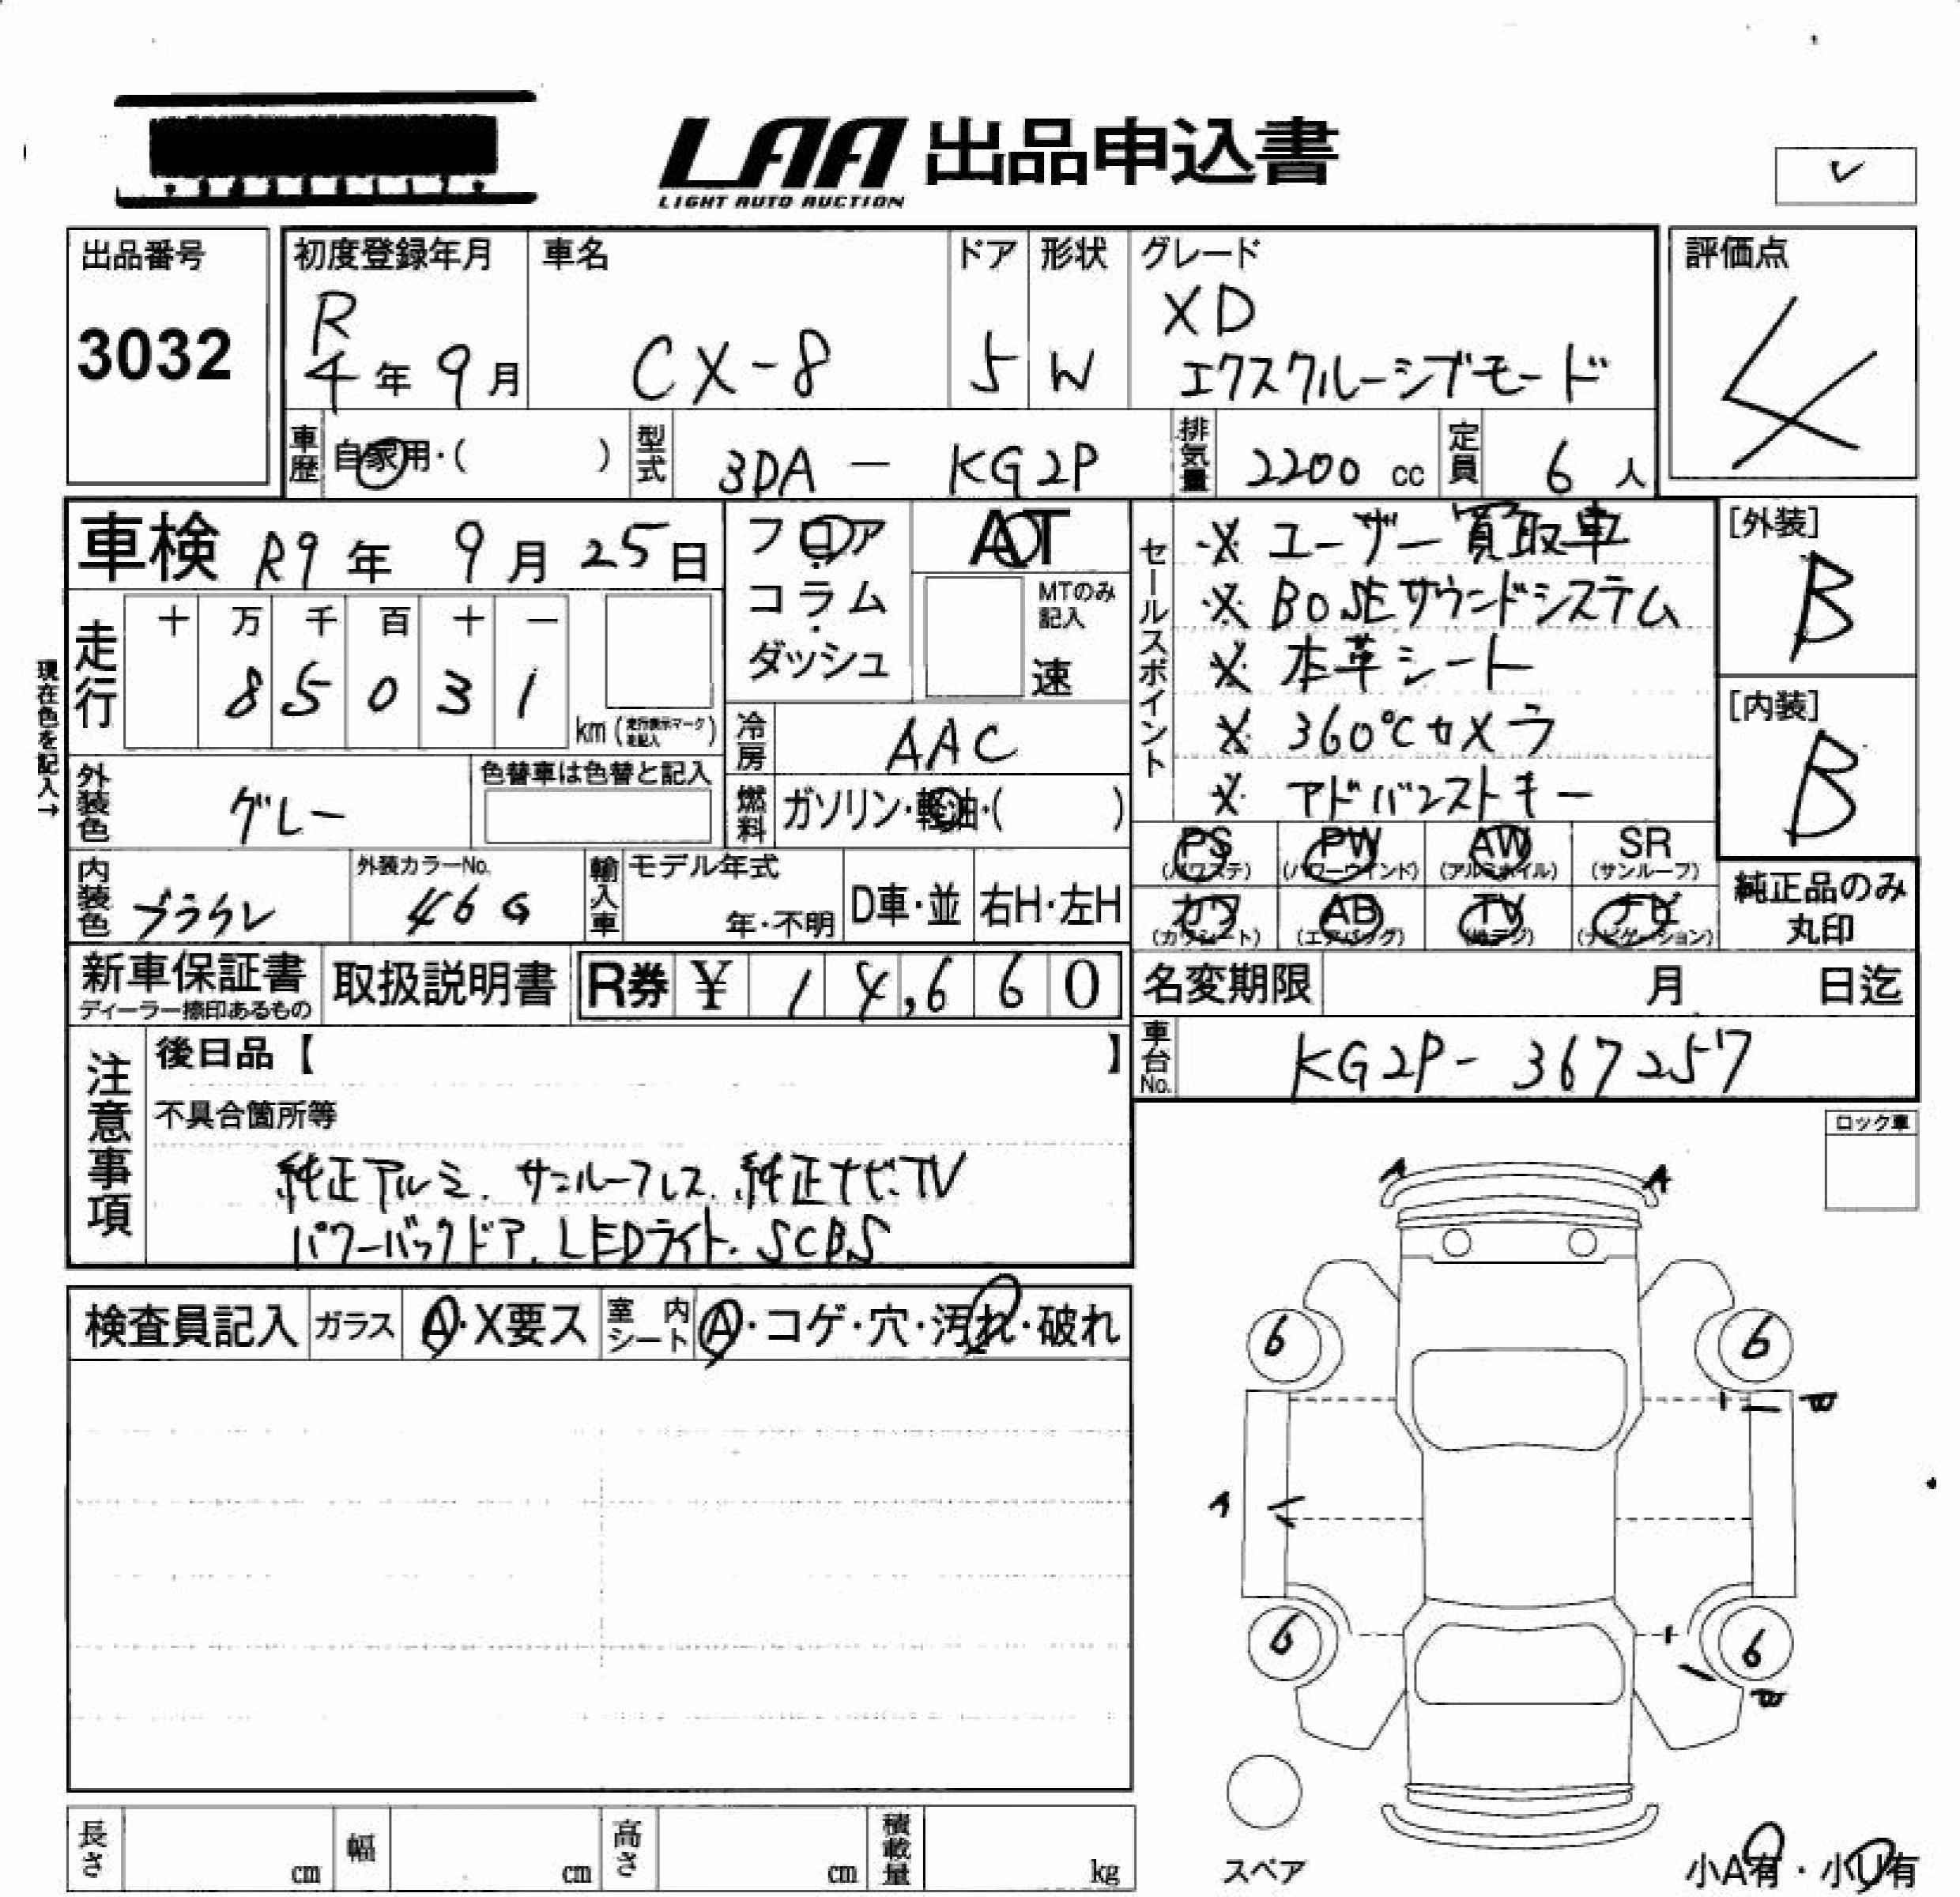 LAA 出品申込書
LIGHT AUTO AUCTION
出品番号
3032
初度登録年月
R
4年 9月
車名
CX-8
ドア
5
形状
W
グレード
XD
エクスクルーシブモード
評価点
4
車歴
自家用・( )
型式
3DA - KG2P
排気量
2200 cc
定員
6 人
車検 R9年 9月 25日
フロア
コラム
ダッシュ
AT
MTのみ
記入
速
セールスポイント
※ ユーザー買取車
※ BOSEサウンドシステム
※ 本革シート
※ 360°Cカメラ
※ アドバンストキー
[外装]
B
[内装]
B
現在色を記入→
走行
十 万 千 百 十 一
8 5 0 3 1
km (走行表示マーク未記入)
冷房
AAC
外装色
グレー
色替車は色替と記入
燃料
ガソリン・軽油・( )
PS (パワステ)
PW (パワーウインド)
AW (アルミホイル)
SR (サンルーフ)
カワ (カワシート)
AB (エアバッグ)
TV (地デジ)
ナビ (ナビゲーション)
純正品のみ
丸印
内装色
ブラック
外装カラーNo.
46G
輸入車
モデル年式
年・不明
D車・並
右H・左H
新車保証書
ディーラー捺印あるもの
取扱説明書
R券 ¥ 1 4,6 6 0
名変期限 月 日迄
車台No.
KG2P-367257
注意事項
後日品【 】
不具合箇所等
純正アルミ. サンルーフレス. 純正ナビ.TV
パワーバックドア. LEDライト. SCBS
ロック車
検査員記入
ガラス
A・X要ス
室内シート
A・コゲ・穴・汚れ・破れ
A A
6 6
A
6 6
スペア
小A有・小U有
長さ cm
幅 cm
高さ cm
積載量 kg